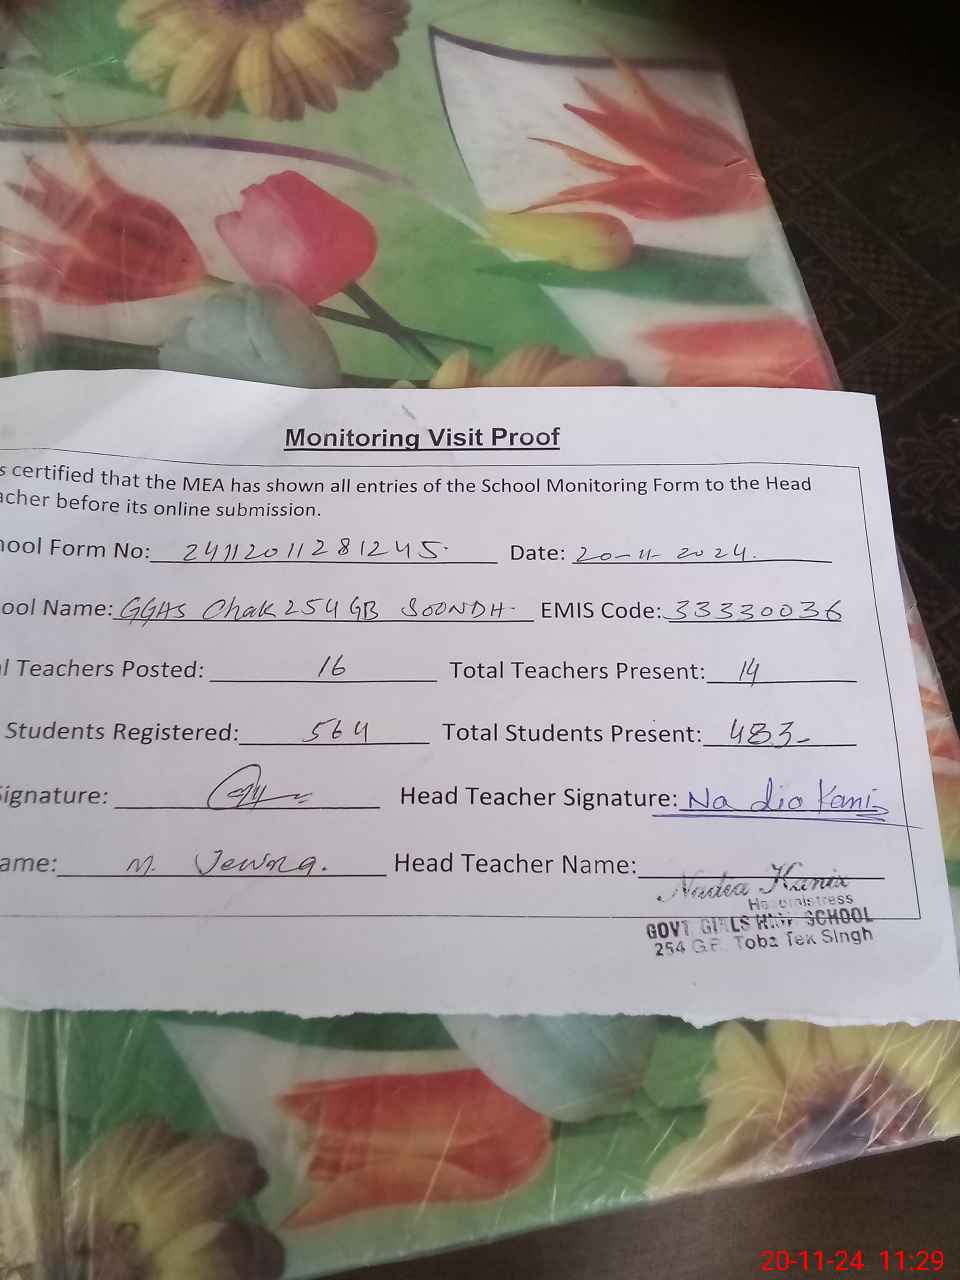 Monitoring Visit Proof
s certified that the MEA has shown all entries of the School Monitoring Form to the Head
acher before its online submission.
ool Form No: 24112011281245. Date: 20-11-2024.
ool Name: GGHS Chak 254 GB SOONDH. EMIS Code: 33330036
l Teachers Posted: 16 Total Teachers Present: 14
Students Registered: 564 Total Students Present: 483-
ignature: Head Teacher Signature: Nadia Kaniz
ame: M. Head Teacher Name:
Nadia Kaniz
Headmistress
GOVT GIRLS HIGH SCHOOL
254 G.B. Toba Tek Singh
20-11-24 11:29